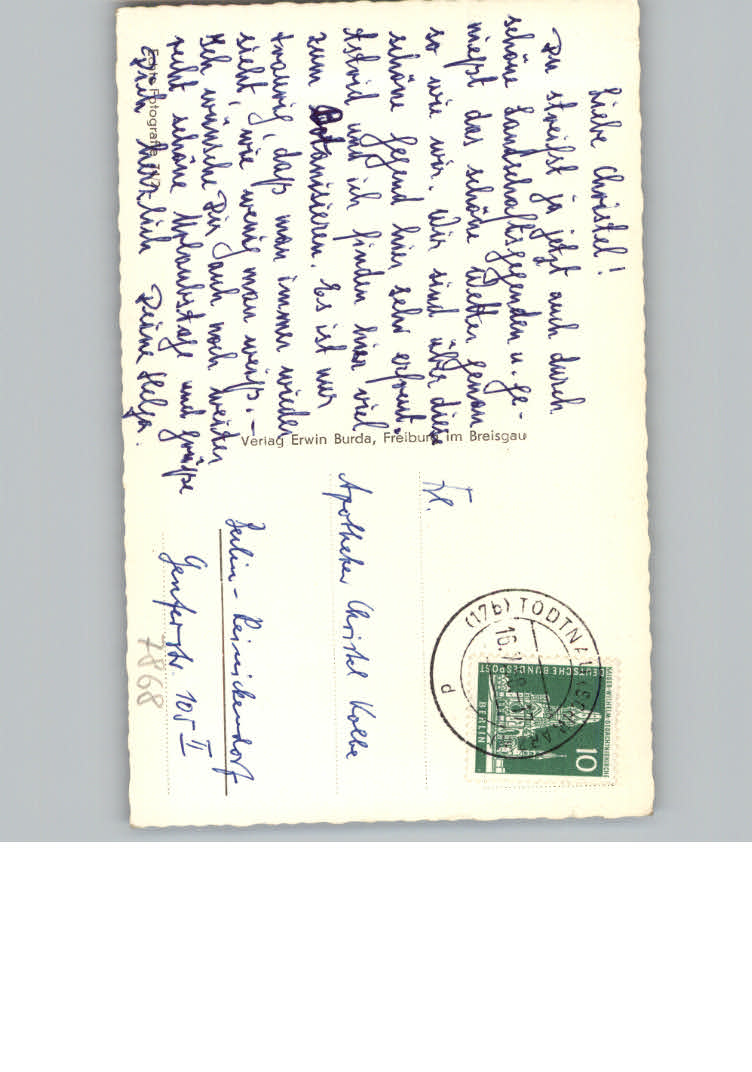 Liebe Christel!
Du streifst ja jetzt auch durch
schöne Landschaftsgegenden u. ge-
nießt das schöne Wetter genau
so wie wir. Wir sind über diese
schöne Gegend hier sehr erfreut.
Astrid und ich finden hier viel
zum Botanisieren. Es ist nur
traurig, daß man immer wieder
sieht, wie wenig man weiß. –
Ich wünsche Dir auch noch weiter
recht schöne Urlaubstage und grüße
Dich herzlich Deine Helga.
Echte Fotografie
Verlag Erwin Burda, Freiburg im Breisgau
Frl.
Apotheker Christel Kolbe
Berlin-Reinickendorf
Genferstr. 105 II
7868
(17b) TODTNAU (SCHWARZW)
16.
p
DEUTSCHE BUNDESPOST
BERLIN
KAISER-WILHELM-GEDÄCHTNISKIRCHE
10